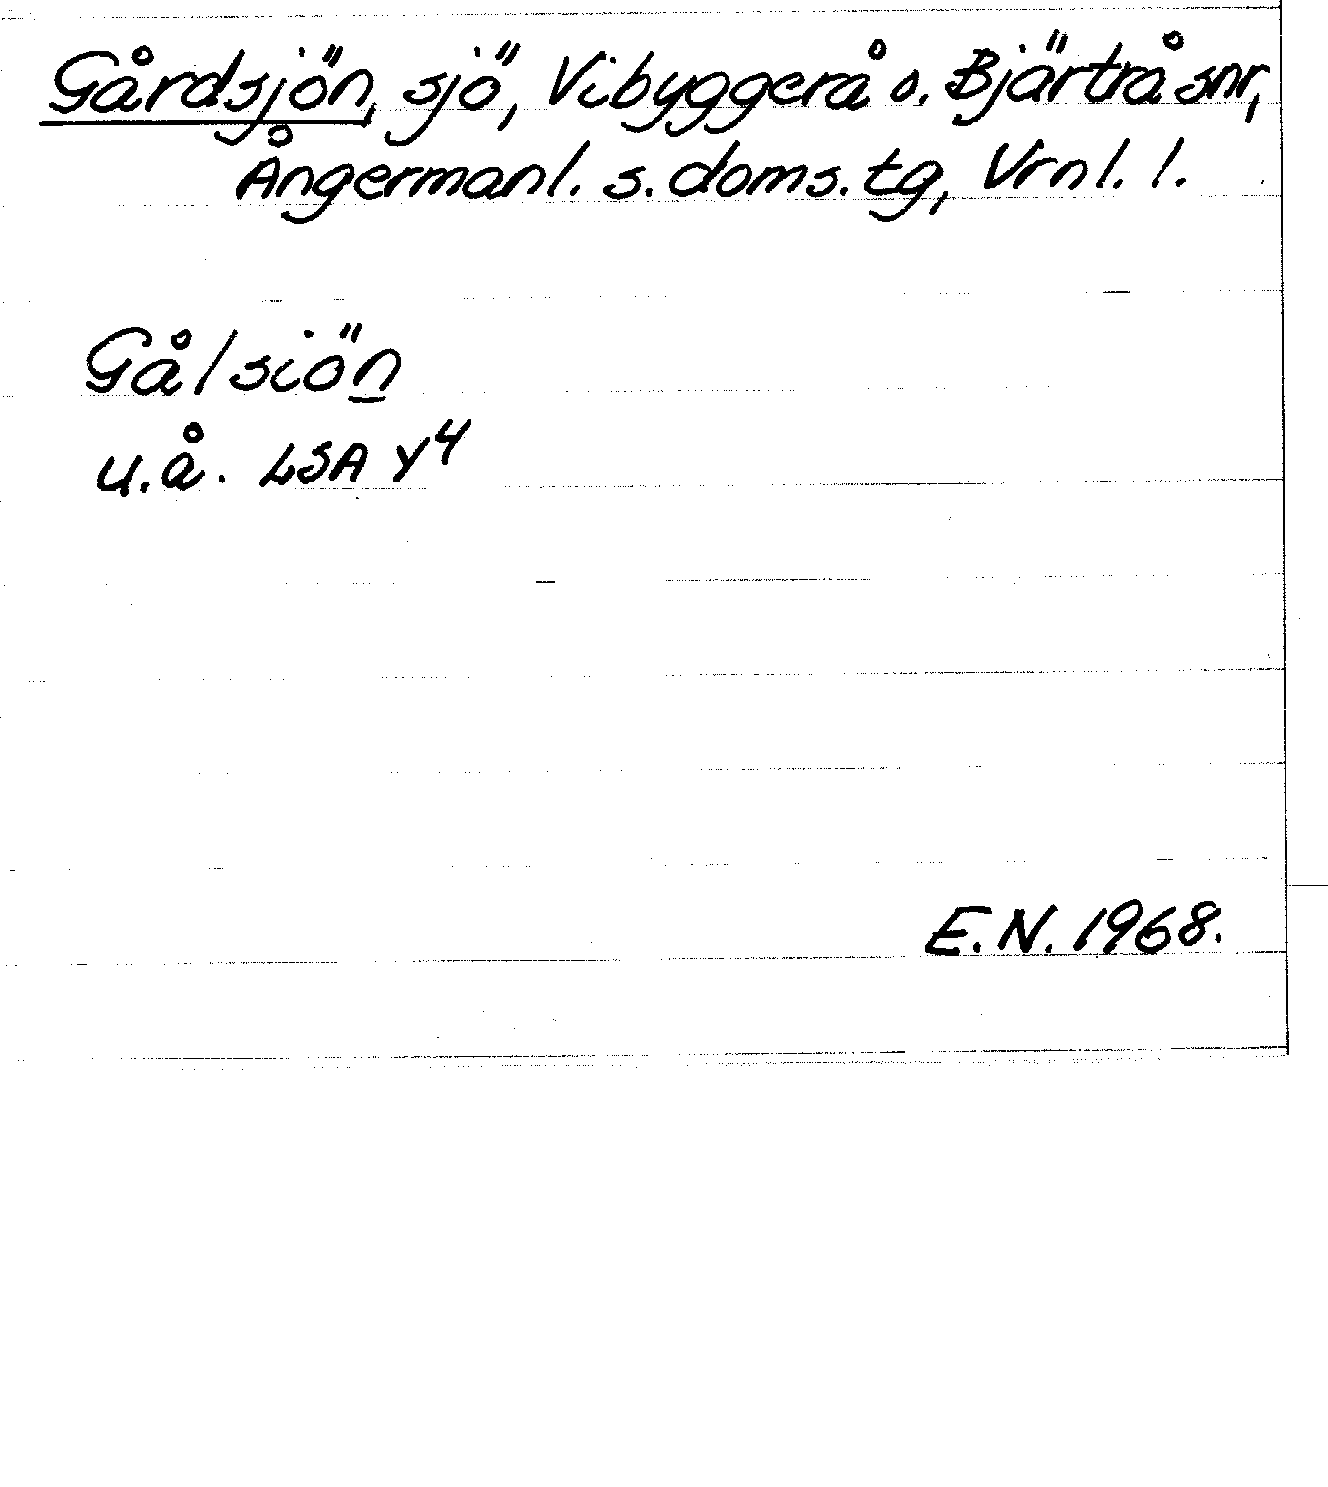 Gårdsjön, sjö, Vibyggerå o. Bjärtrå snr,
Ångermanl. s. doms. tg, Vrnl. l.
Gålsiön
u.å. LSA Y4
E.N. 1968.